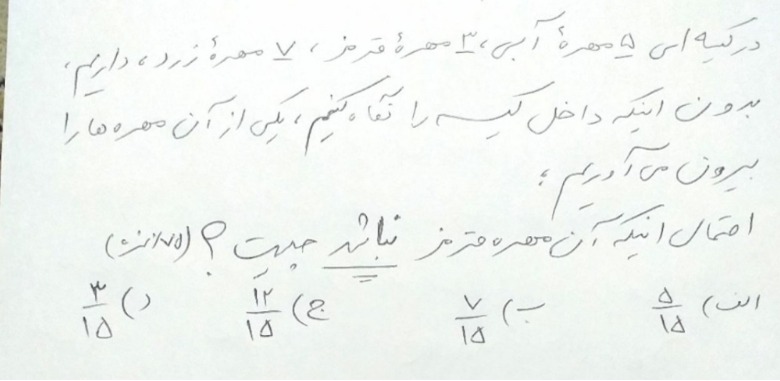 در کیسه ای ۵ مهرهٔ آبی، ۳ مهرهٔ قرمز، ۷ مهرهٔ زرد، داریم،
بدون اینکه داخل کیسه را نگاه کنیم، یکی از آن مهره ها را
بیرون می آوریم؛
احتمال اینکه آن مهره قرمز نباشد چیست؟ (۰/۷۵ نمره)
الف) ۵/۱۵ ب) ۷/۱۵ ج) ۱۲/۱۵ د) ۳/۱۵